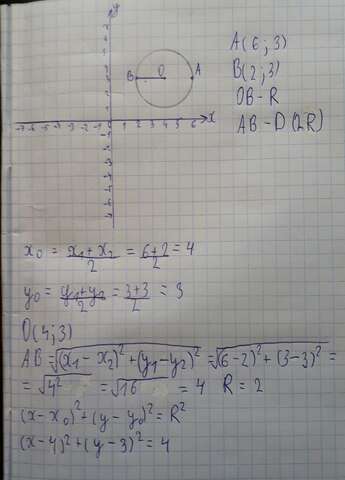 y
B O A
-7 -6 -5 -4 -3 -2 -1 1 2 3 4 5 6 x
A(6;3)
B(2;3)
OB-R
AB-D(2R)
x₀ = x₁+x₂/2 = 6+2/2 = 4
y₀ = y₁+y₂/2 = 3+3/2 = 3
O(4;3)
AB = √(x₁-x₂)²+(y₁-y₂)² = √(6-2)²+(3-3)² =
= √4² = √16 = 4 R = 2
(x-x₀)²+(y-y₀)²=R²
(x-4)²+(y-3)²=4